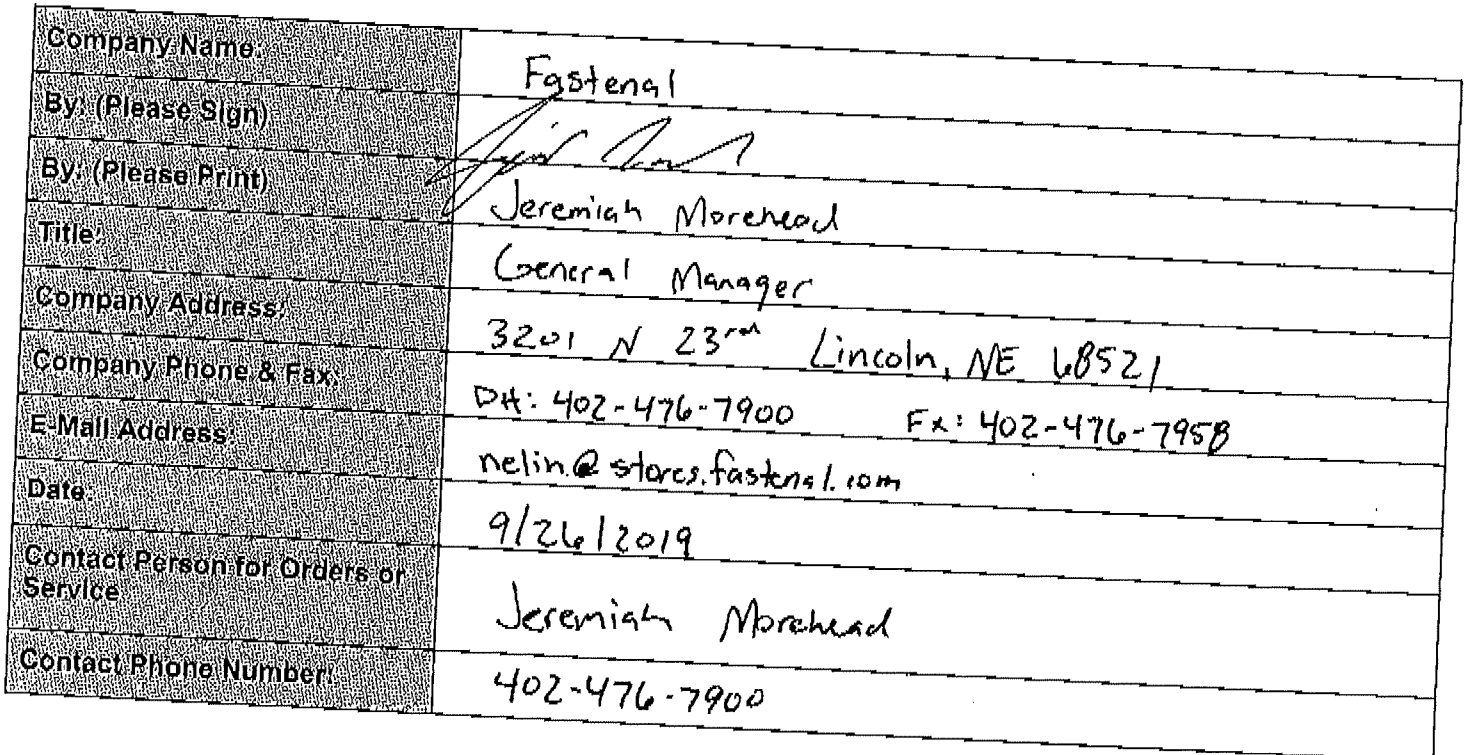 Company Name: Fastenal
By: (Please Sign)
By: (Please Print) Jeremiah Morehead
Title: General Manager
Company Address: 3201 N 23rd Lincoln, NE 68521
Company Phone & Fax: PH: 402-476-7900 Fx: 402-476-7958
E-Mail Address: nelin@stores.fastenal.com
Date: 9/26/2019
Contact Person for Orders or
Service Jeremiah Morehead
Contact Phone Number: 402-476-7900